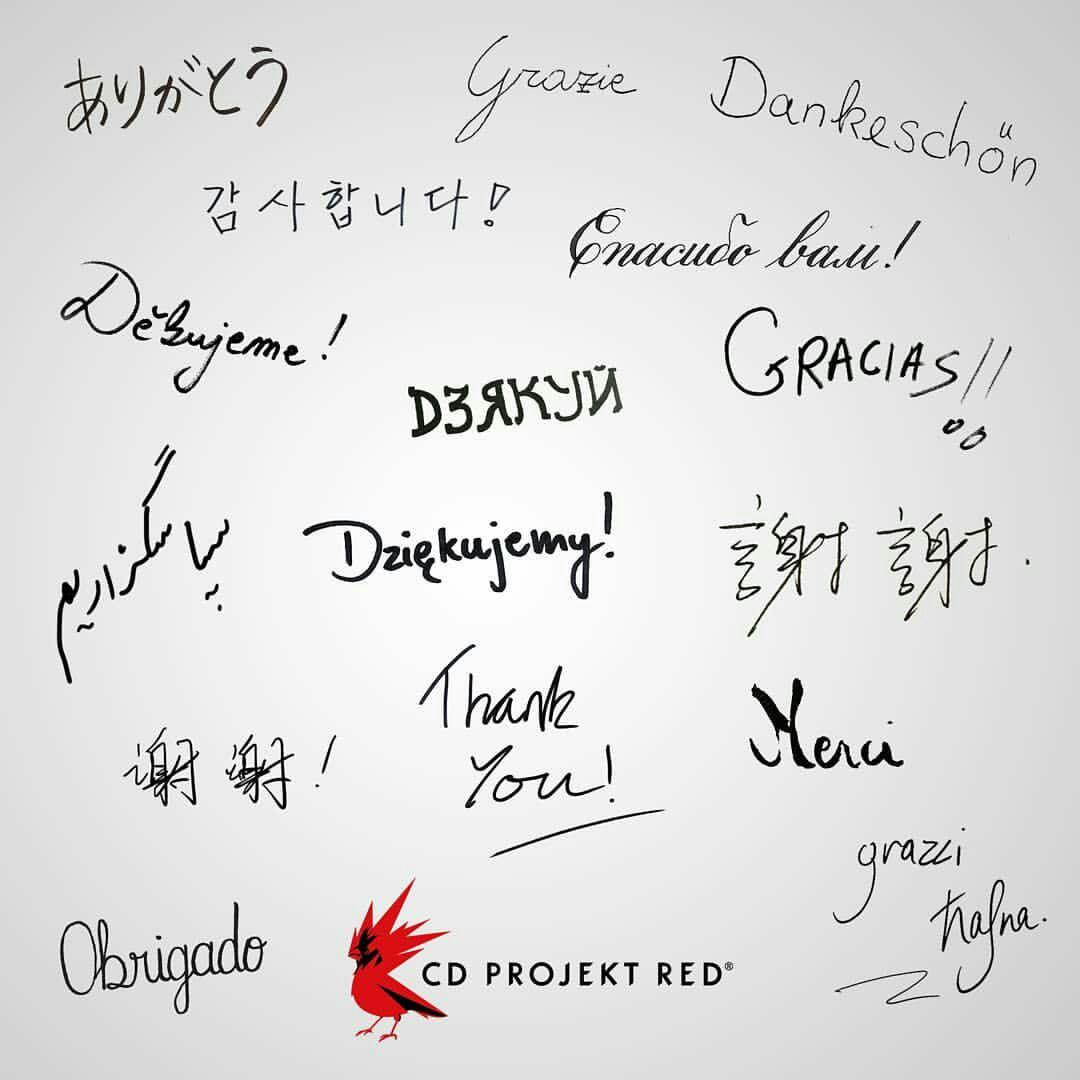 ありがとう
Grazie
Dankeschön
감사합니다!
Спасибо вам!
Děkujeme!
GRACIAS!!
ДЗЯКУЙ
سپاسگزاریم
Dziękujemy!
謝謝.
Thank
You!
Merci
谢谢!
grazzi
ħafna.
Obrigado
CD PROJEKT RED®